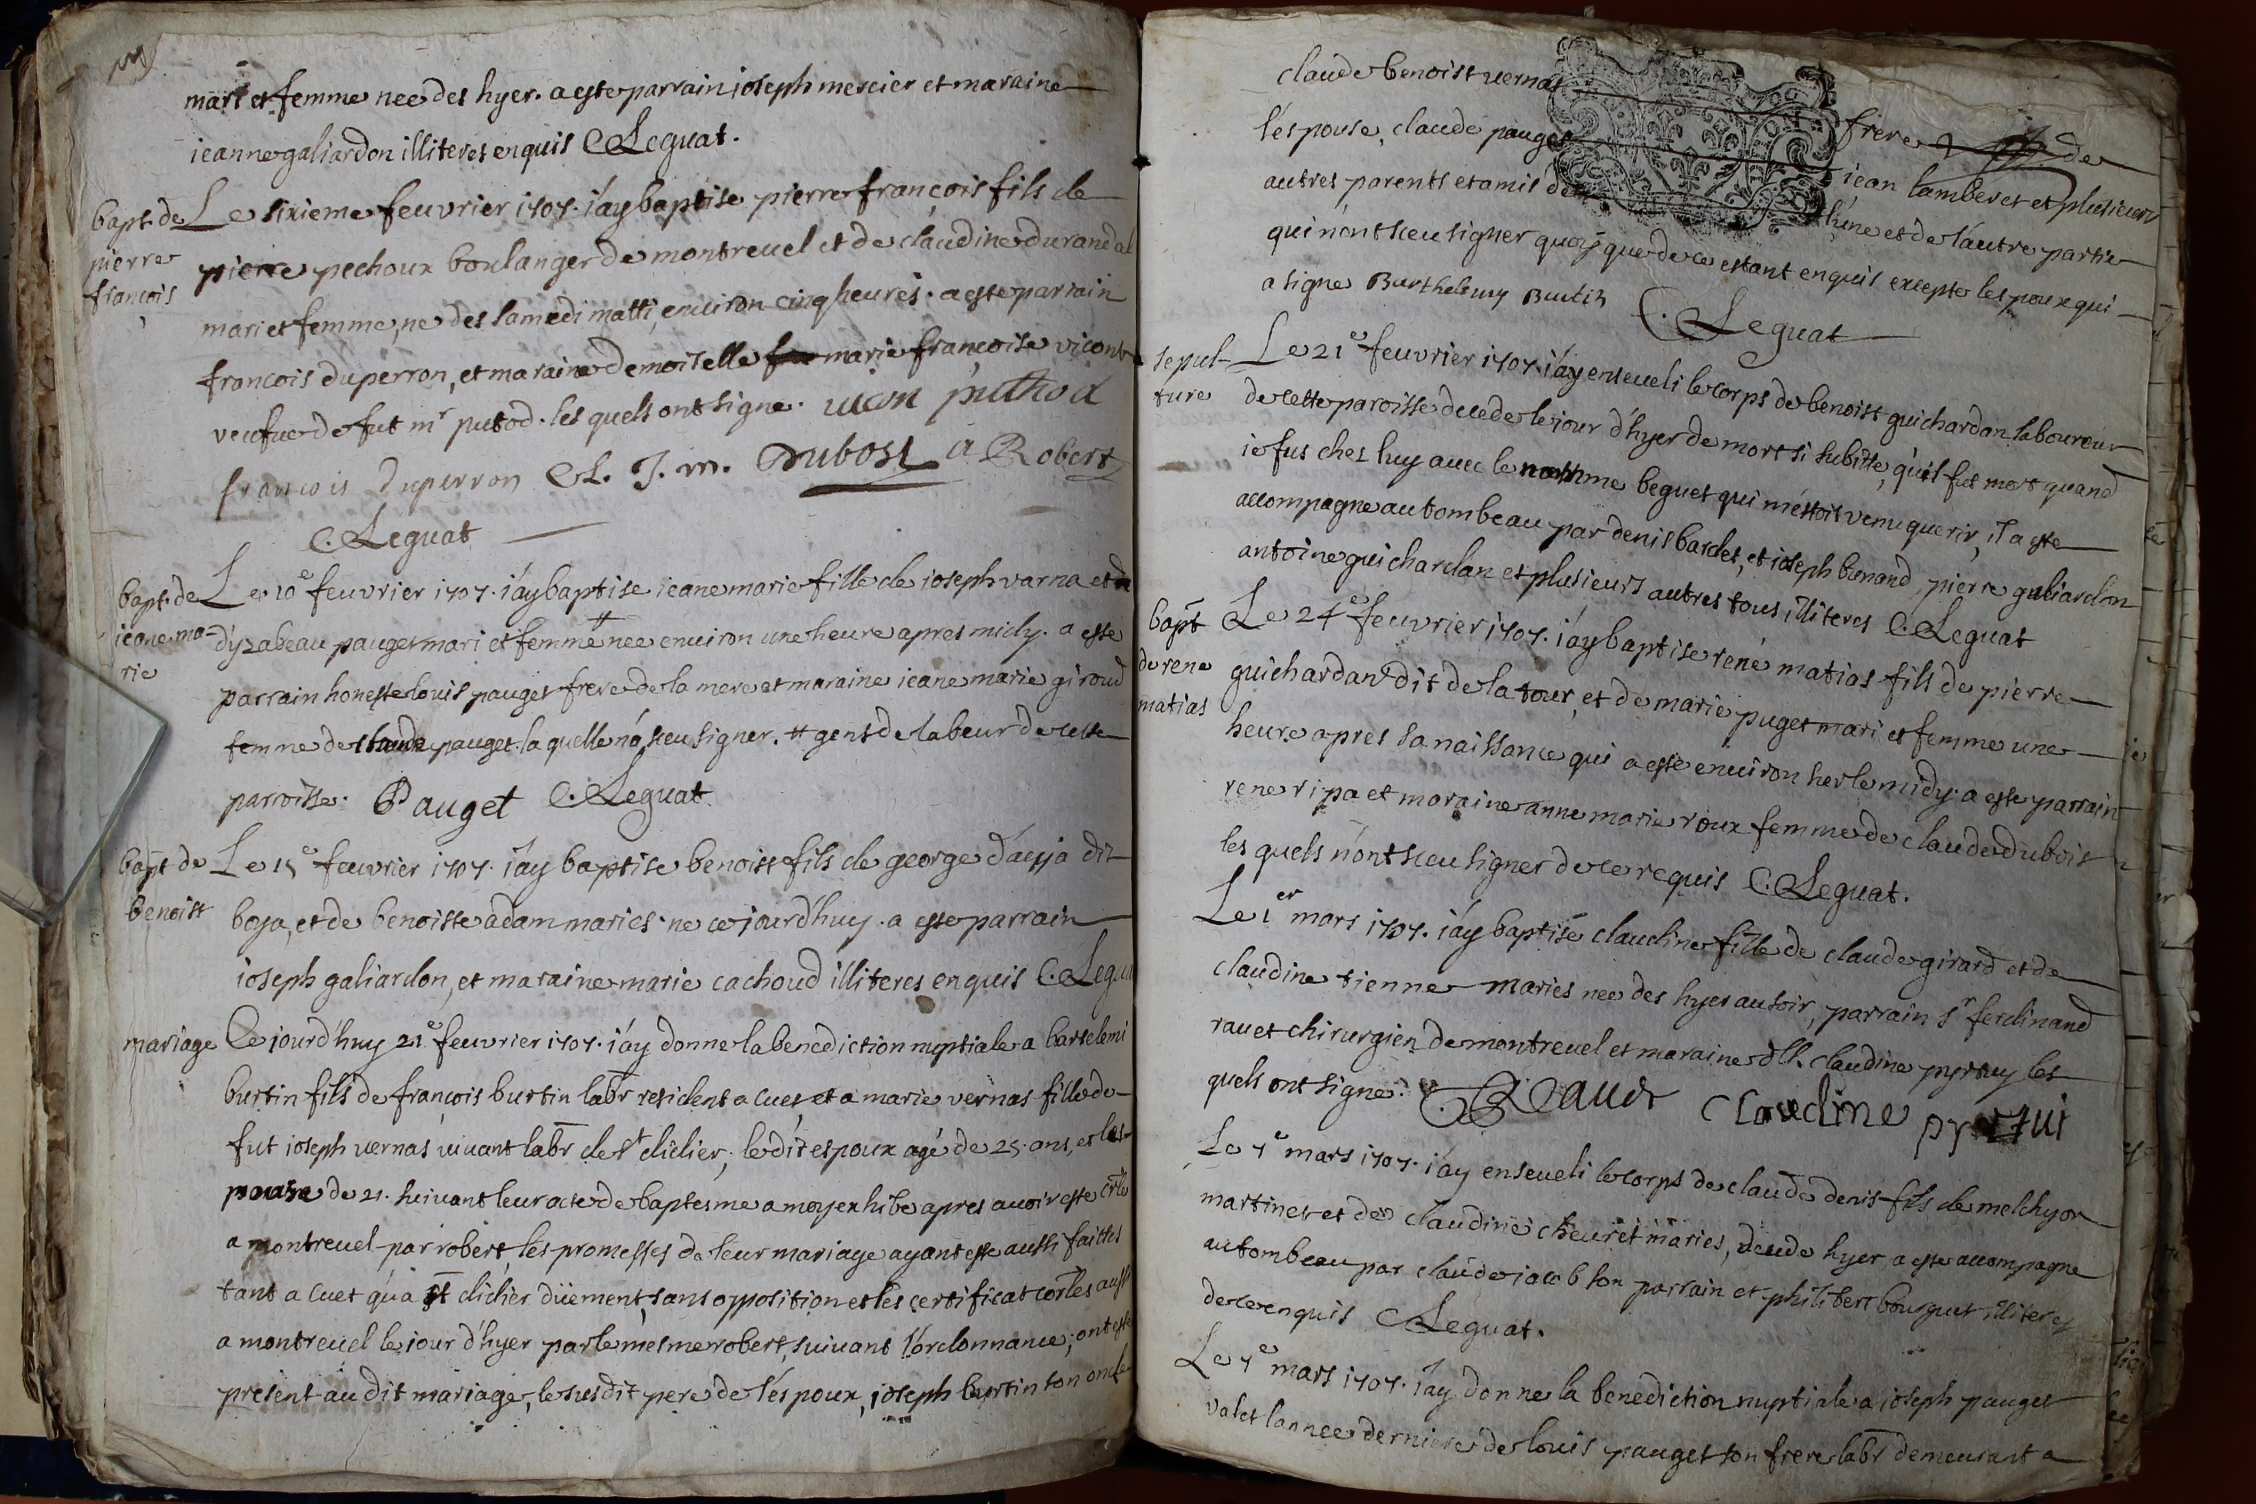 mari et femme nee des hyer. a este parrain ioseph mercier et maraine
ieanne galiardon illiteres enquis C. Leguat.
bapt. de
pierre
françois
Le sixieme feuvrier 1707. i'ay baptise pierre françois fils de
pierre pechoux boulanger de montreuel et de claudine durandal
mari et femme, ne des samedi matti, environ cinq heures. a este parrain
françois duperron, et maraine demoiselle marie françoise vicont
veufue de fut mr putod. les quels ont signe. vicon puthod
francois Duperron CL. J. m. Dubost a Robert
C. Leguat
bapt. de
ieane ma-
rie
Le 10e feuvrier 1707. i'ay baptise ieane marie fille de ioseph varna et de
d'yzabeau pauget mari et femme # nee environ une heure apres midy. a este
parrain honeste louis pauget frere de la mere et maraine ieane marie giroud
femme de claude pauget. la quelle n'a sceu signer. # gents de labeur de cette
paroisse. Pauget C. Leguat
bapt de
benoist
Le 15e feuvrier 1707. i'ay baptise benoist fils de george dit
boya, et de benoiste adam maries. ne ce jourd'huy. a este parrain
ioseph galiardon, et maraine marie cachoud illiteres enquis C. Leguat
mariage
Ce jourd'huy 21e feuvrier 1707. i'ay donne la benediction nuptiale a bartelemi
burtin fils de françois burtin labr resident a cuet, et a marie vernas fille de
fut ioseph vernas vivant labr de st didier, le dit espoux agé de 25. ans, et les-
pouse de 21. suivant leur acte de baptesme a moy exhibe apres avoir este crle
a montreuel par robert, les promesses de leur mariage ayant este aussi faittes
tant a cuet qu'a st didier düement, sans opposition et les certificat corles aussi
a montreuel le iour d'hyer par le mesme robert, suivant l'ordonnance, ont este
present au dit mariage, le susdit pere de l'espoux, ioseph burtin son oncle
claude benoist vernas frere de
l'espouse, claude pauget iean lamberet et plusieurs
autres parents et amis de l'une et de l'autre partie
qui n'ont sceu signer quoy que de ce estant enquis excepte l'espoux qui
a signe Barthelemy Burtin
C. Leguat
sepul-
ture
Le 21e feuvrier 1707. i'ay enseueli le corps de benoist guichardan laboureur
de cette paroisse decede le iour d'hyer de mort si subitte, qu'il fut mort quand
ie fus chez luy avec le nomme beguet qui m'estoit venu querir, il a este
accompagne au tombeau par denis bardet, et ioseph brenand, pierre galiardon
antoine guichardan et plusieurs autres tous illiteres C. Leguat
bapt
de rene
matias
Le 24e feuvrier 1707. i'ay baptise rené matias fils de pierre
guichardan dit de la tour, et de marie puget mari et femme une
heure apres sa naissance qui a este environ her le midy. a este parrain
rene ripa et maraine anne marie roux femme de claude dubois
les quels n'ont sceu signer de ce requis C. Leguat.
Le 1er mars 1707. i'ay baptisé claudine fille de claude girard et de
claudine tienne maries nee des hyer au soir, parrain sr ferdinand
ravet chirurgien de montreuel et maraine dlle claudine pyrtuy les
quels ont signe. Claudine
Le 7e mars 1707. i'ay enseueli le corps de claude denis fils de melchyor
martinet et de claudine cheuret maries, decede hyer a este accompagne
au tombeau par claude iacob son parrain et philibert bourguet illiteres
de ce enquis C. Leguat.
Le 7e mars 1707. i'ay donne la benediction nuptiale a ioseph pauget
valet l'annee derniere de louis pauget son frere labr demeurant a